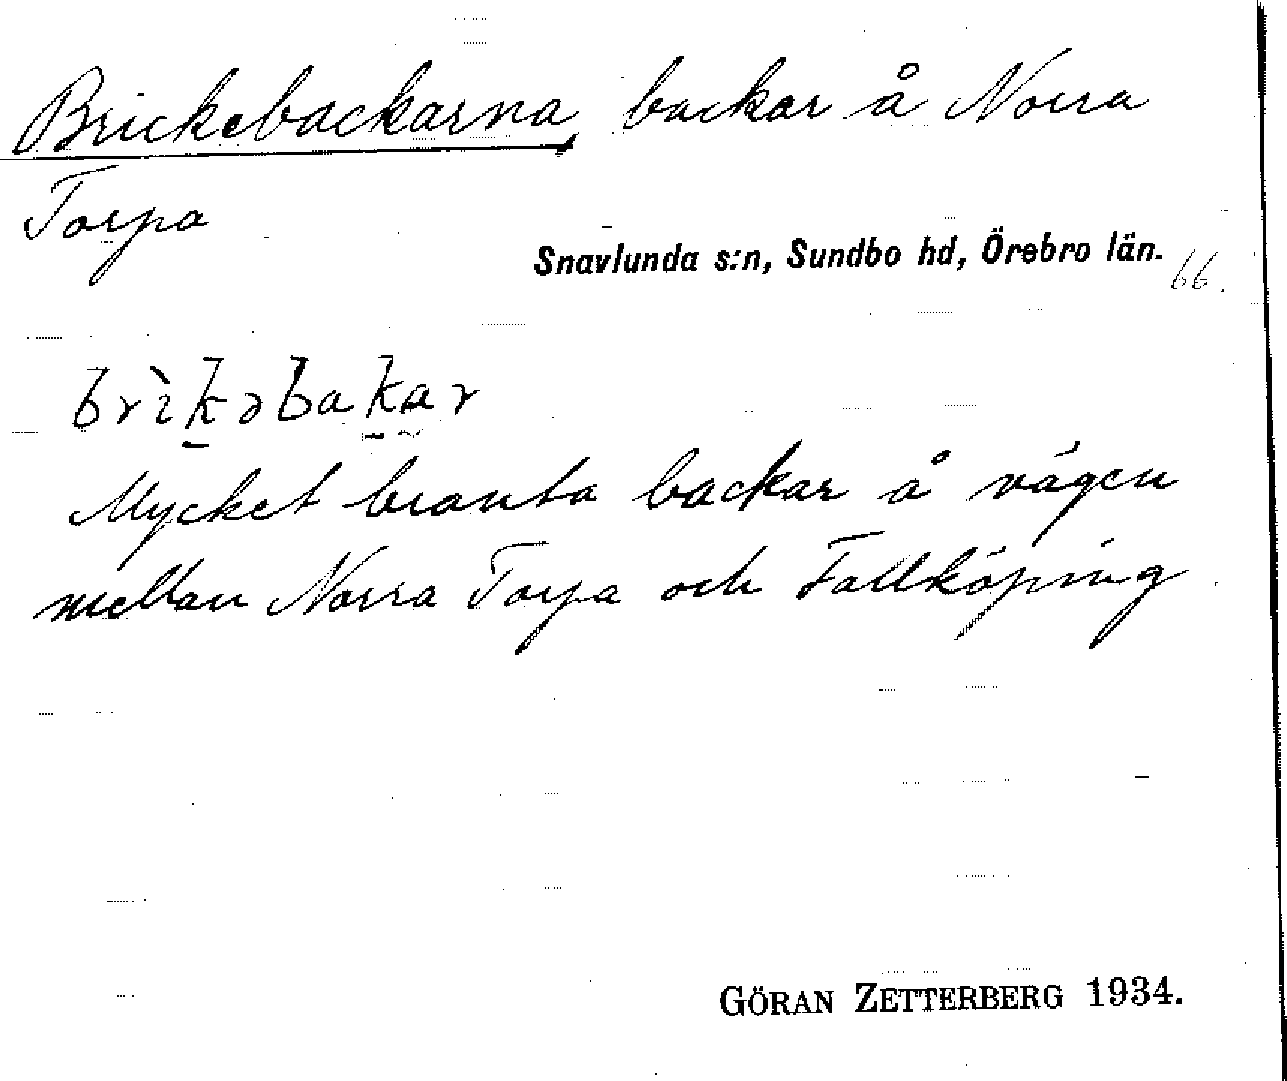 Brickebackarna, backar å Norra
Torpa
Snavlunda s:n, Sundbo hd, Örebro län.
66.
brìk̠əbak̠ar
Mycket branta backar å vägen
mellan Norra Torpa och Fallköping
GÖRAN ZETTERBERG 1934.